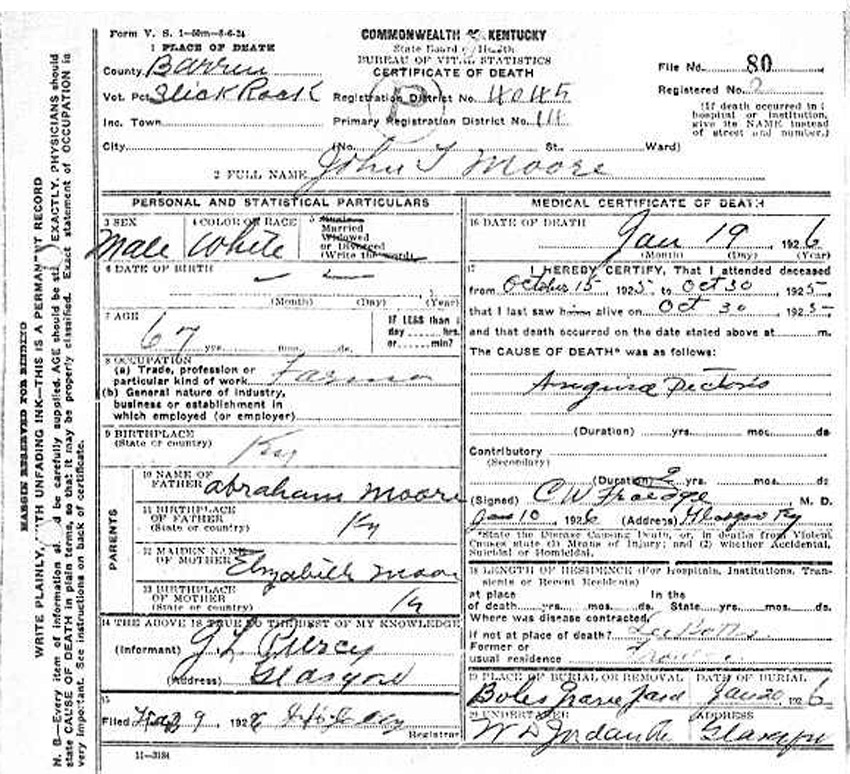 Form V. S. 1—50m—8-6-24
COMMONWEALTH OF KENTUCKY
State Board of Health
BUREAU OF VITAL STATISTICS
CERTIFICATE OF DEATH
1 PLACE OF DEATH
County Barren
Vot. Pct. Slick Rock
Inc. Town
City
Registration District No. 4045
Primary Registration District No.
(No. St. Ward)
File No. 80
Registered No. 2
(If death occurred in a
hospital or institution,
give its NAME instead
of street and number.)
2 FULL NAME John T Moore
PERSONAL AND STATISTICAL PARTICULARS
3 SEX
Male
4 COLOR OR RACE
White
5 Single
Married
Widowed
or Divorced
(Write the word)
6 DATE OF BIRTH
(Month) (Day) (Year)
7 AGE
67 yrs. mos. ds.
If LESS than 1
day hrs.
or min?
8 OCCUPATION
(a) Trade, profession or
particular kind of work Farmer
(b) General nature of industry,
business or establishment in
which employed (or employer)
9 BIRTHPLACE
(State or country) Ky
PARENTS
10 NAME OF
FATHER Abraham Moore
11 BIRTHPLACE
OF FATHER
(State or country) Ky
12 MAIDEN NAME
OF MOTHER Elizabeth Moore
13 BIRTHPLACE
OF MOTHER
(State or country) Ky
14 THE ABOVE IS TRUE TO THE BEST OF MY KNOWLEDGE
(Informant) G L Piercy
(Address) Glasgow
15
Filed 9, 1926
Registrar
11—3184
MEDICAL CERTIFICATE OF DEATH
16 DATE OF DEATH
Jan 19, 1926
(Month) (Day) (Year)
17 I HEREBY CERTIFY, That I attended deceased
from October 15 1925, to Oct 30 1925,
that I last saw him alive on Oct 30 1925
and that death occurred on the date stated above at m.
The CAUSE OF DEATH* was as follows:
Anguina Pectoris
(Duration) yrs. mos. ds
Contributory
(Secondary)
(Duration) 2 yrs. mos. ds
(Signed) C W Froedge M. D.
Jan 10 1926 (Address) Glasgow Ky
*State the Disease Causing Death, or, in deaths from Violent
Causes state (1) Means of Injury; and (2) whether Accidental,
Suicidal or Homicidal.
18 LENGTH OF RESIDENCE (For Hospitals, Institutions, Tran-
sients or Recent Residents)
At place In the
of death yrs. mos. ds. State yrs. mos. ds.
Where was disease contracted,
if not at place of death?
Former or
usual residence
19 PLACE OF BURIAL OR REMOVAL
Boles Grave Yard
DATE OF BURIAL
Jan 20 1926
20 UNDERTAKER
W D Jordan
ADDRESS
Glasgow
MARGIN RESERVED FOR BINDING
WRITE PLAINLY, WITH UNFADING INK—THIS IS A PERMANENT RECORD
N. B.—Every item of information should be carefully supplied. AGE should be stated EXACTLY. PHYSICIANS should
state CAUSE OF DEATH in plain terms, so that it may be properly classified. Exact statement of OCCUPATION is
very important. See instructions on back of certificate.